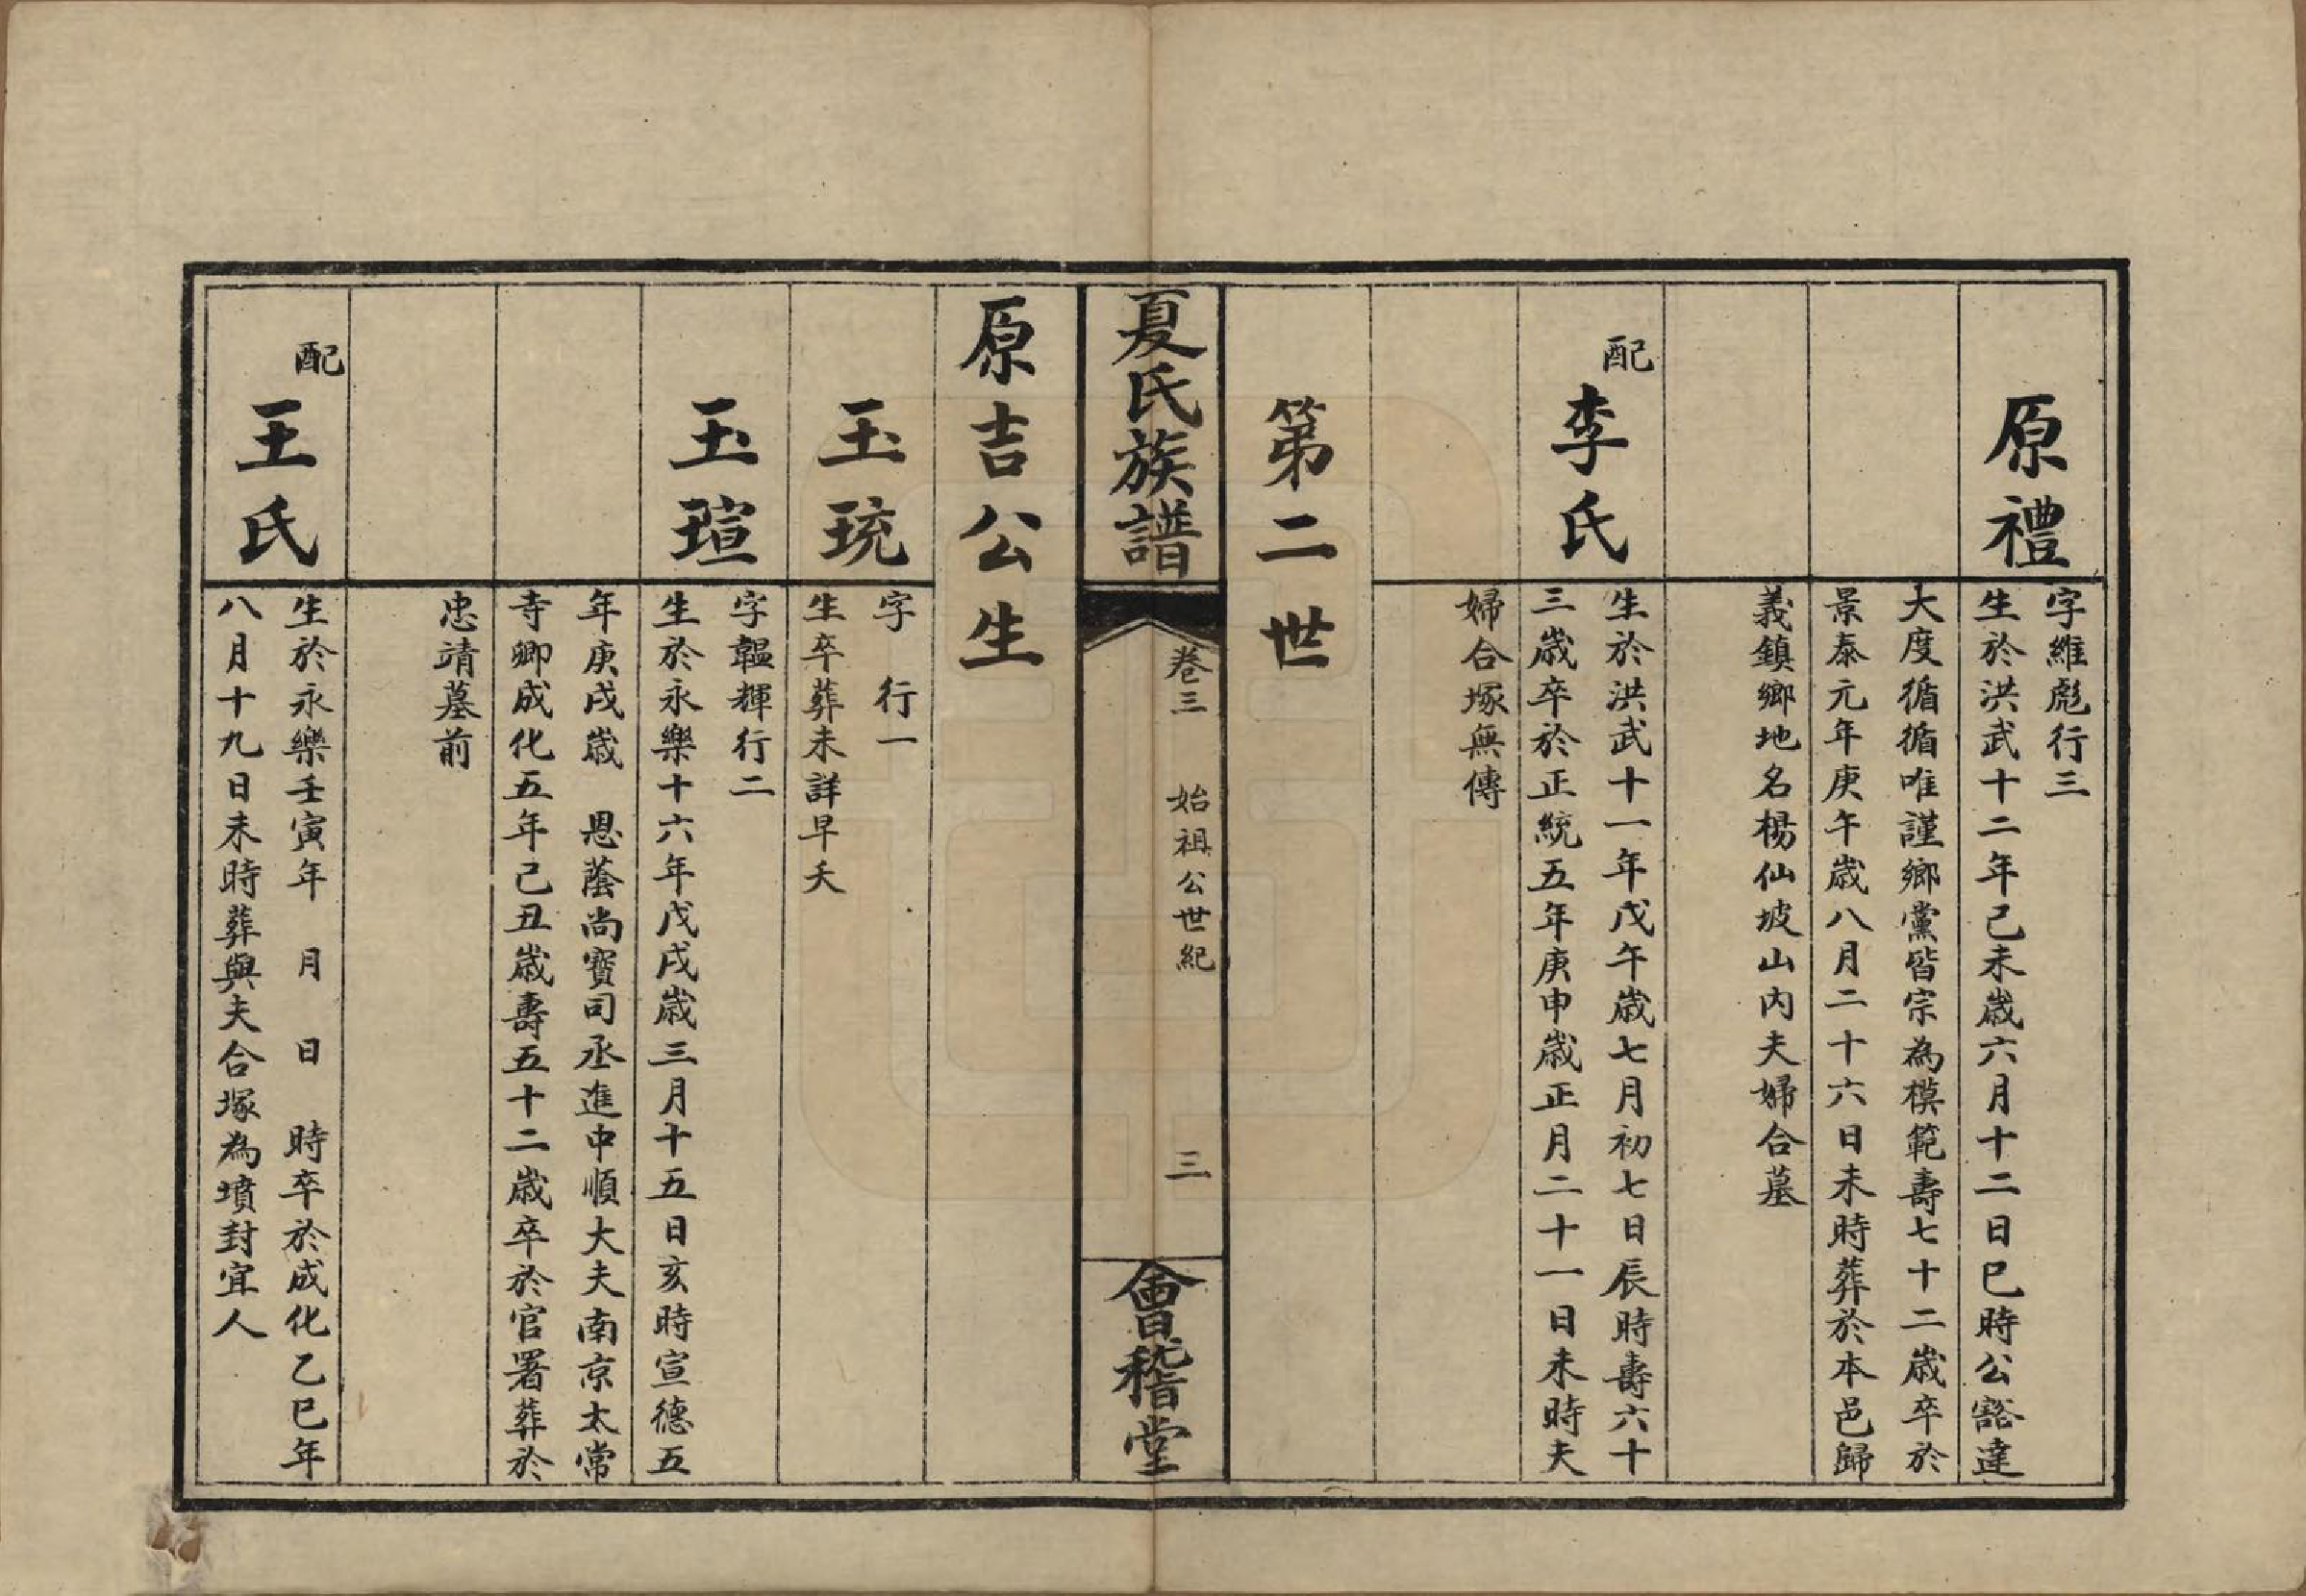 原禮
字維彪行三
生於洪武十二年己未歲六月十二日巳時公豁達
大度循循唯謹鄉黨皆宗為模範壽七十二歲卒於
景泰元年庚午歲八月二十六日未時葬於本邑歸
義鎮鄉地名楊仙坡山內夫婦合墓
配
李氏
生於洪武十一年戊午歲七月初七日辰時壽六十
三歲卒於正統五年庚申歲正月二十一日未時夫
婦合塚無傳
第二世
夏氏族譜
卷三 始祖公世紀 三
會稽堂
原吉公生
玉琉
字 行一
生卒葬未詳早夭
玉瑄
字韞輝行二
生於永樂十六年戊戌歲三月十五日亥時宣德五
年庚戌歲 恩蔭尚寶司丞進中順大夫南京太常
寺卿成化五年己丑歲壽五十二歲卒於官署葬於
忠靖墓前
配
王氏
生於永樂壬寅年 月 日 時卒於成化乙巳年
八月十九日未時葬與夫合塚為墳封宜人